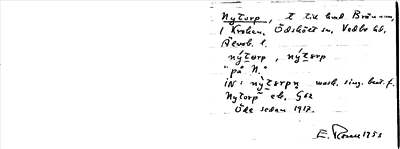 Nytorp, t till hmd Brännan,
i Kroken, Ödskölts sn, Vedbo hd,
Älvsb. l.
nýtɔrp, nýtɔrp
"på N."
iN: nýtɔrpn mask. sing. best. f.
Nytorp ek. G62
Öde sedan 1917.
E. Rosell 1953